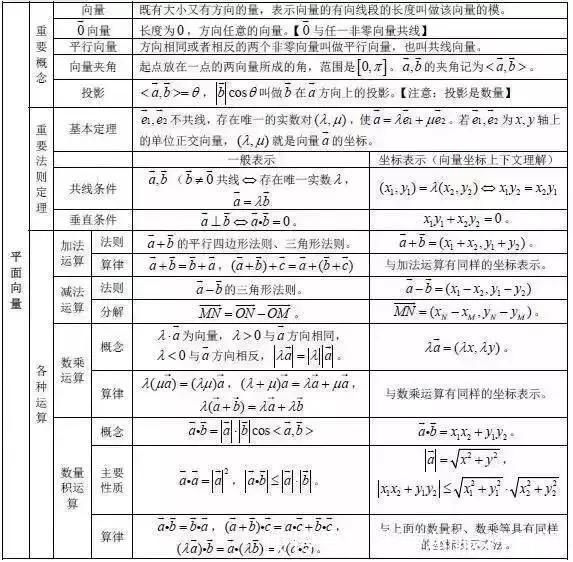 平面向量
重要概念
向量 既有大小又有方向的量，表示向量的有向线段的长度叫做该向量的模。
0⃗向量 长度为0，方向任意的向量。【0⃗与任一非零向量共线】
平行向量 方向相同或者相反的两个非零向量叫做平行向量，也叫共线向量。
向量夹角 起点放在一点的两向量所成的角，范围是[0,π]。a⃗,b⃗的夹角记为<a⃗,b⃗>。
投影 <a⃗,b⃗>=θ，|b⃗|cosθ叫做b⃗在a⃗方向上的投影。【注意：投影是数量】
重要法则定理
基本定理 e⃗1,e⃗2不共线，存在唯一的实数对(λ,μ)，使a⃗=λe⃗1+μe⃗2。若e⃗1,e⃗2为x,y轴上
的单位正交向量，(λ,μ)就是向量a⃗的坐标。
一般表示 坐标表示（向量坐标上下文理解）
共线条件 a⃗,b⃗（b⃗≠0⃗共线⇔存在唯一实数λ，
a⃗=λb⃗ (x1,y1)=λ(x2,y2)⇔x1y2=x2y1
垂直条件 a⃗⊥b⃗⇔a⃗•b⃗=0。 x1y1+x2y2=0。
各种运算
加法运算
法则 a⃗+b⃗的平行四边形法则、三角形法则。 a⃗+b⃗=(x1+x2,y1+y2)。
算律 a⃗+b⃗=b⃗+a⃗，(a⃗+b⃗)+c⃗=a⃗+(b⃗+c⃗) 与加法运算有同样的坐标表示。
减法运算
法则 a⃗−b⃗的三角形法则。 a⃗−b⃗=(x1−x2,y1−y2)
分解 MN⃗=ON⃗−OM⃗。 MN⃗=(xN−xM,yN−yM)。
数乘运算
概念 λ·a⃗为向量，λ>0与a⃗方向相同，
λ<0与a⃗方向相反，|λa⃗|=|λ||a⃗|。 λa⃗=(λx,λy)。
算律 λ(μa⃗)=(λμ)a⃗，(λ+μ)a⃗=λa⃗+μa⃗，
λ(a⃗+b⃗)=λa⃗+λb⃗ 与数乘运算有同样的坐标表示。
数量积运算
概念 a⃗•b⃗=|a⃗|·|b⃗|cos<a⃗,b⃗> a⃗•b⃗=x1x2+y1y2。
主要性质 a⃗•a⃗=|a⃗|²，|a⃗•b⃗|≤|a⃗|·|b⃗|。 |a⃗|=√(x²+y²)，
|x1x2+y1y2|≤√(x1²+y1²)·√(x2²+y2²)
算律 a⃗•b⃗=b⃗•a⃗，(a⃗+b⃗)•c⃗=a⃗•c⃗+b⃗•c⃗，
(λa⃗)•b⃗=a⃗•(λb⃗)=λ(a⃗•b⃗)。 与上面的数量积、数乘等具有同样
的坐标表示方法。